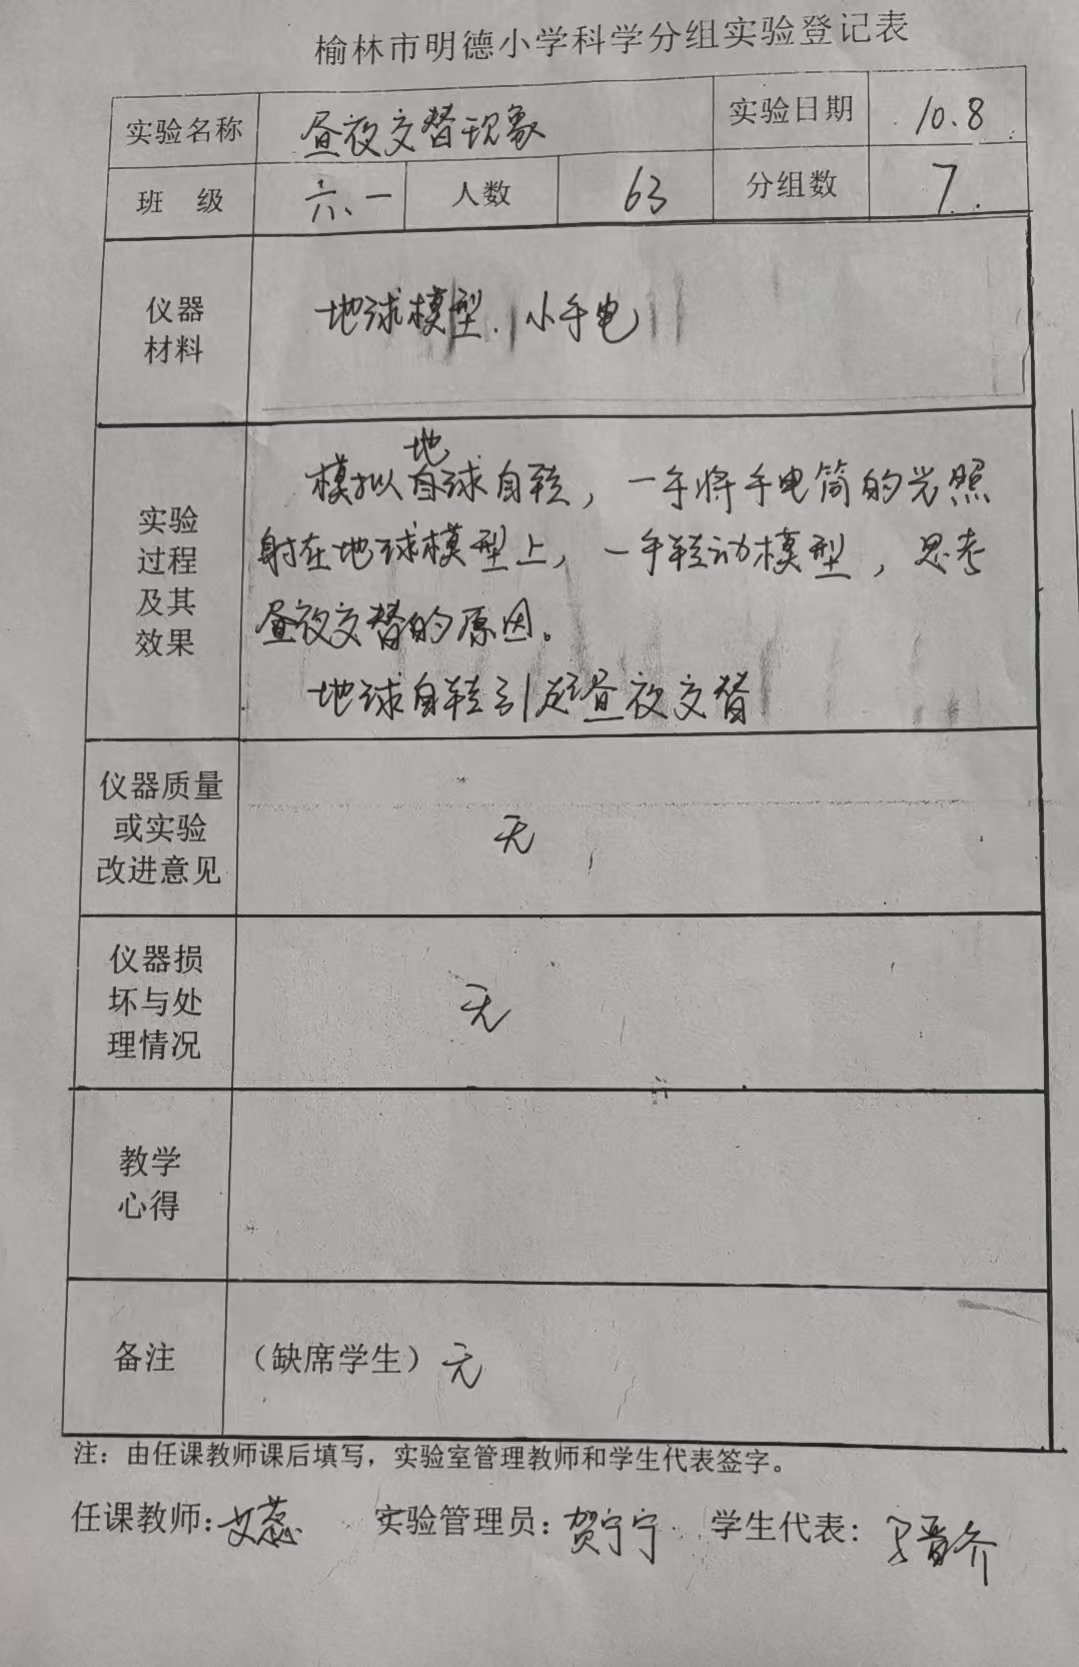 榆林市明德小学科学分组实验登记表
实验名称 昼夜交替现象 实验日期 10.8
班 级 六、一 人数 63 分组数 7
仪器
材料
地球模型、小手电
实验
过程
及其
效果
地
模拟自球自转，一手将手电筒的光照
射在地球模型上，一手转动模型，思考
昼夜交替的原因。
地球自转引起昼夜交替
仪器质量
或实验
改进意见
无
仪器损
坏与处
理情况
无
教学
心得
备注 （缺席学生）无
注：由任课教师课后填写，实验室管理教师和学生代表签字。
任课教师：艾蕊 实验管理员：贺宁宁 学生代表：